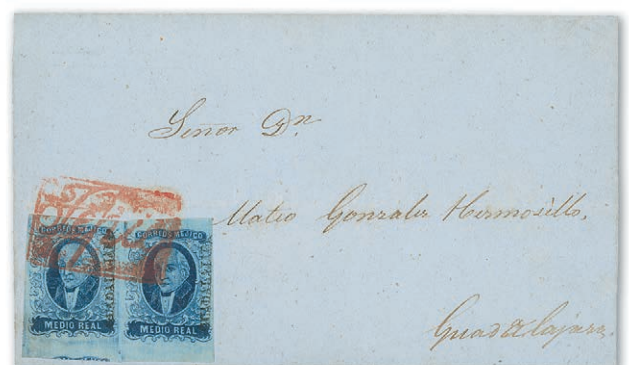 Señor Dn
Mateo Gonzalez Hermosillo.
Guadalajara.
CORREOS MEJICO
MEDIO REAL
CORREOS MEJICO
MEDIO REAL